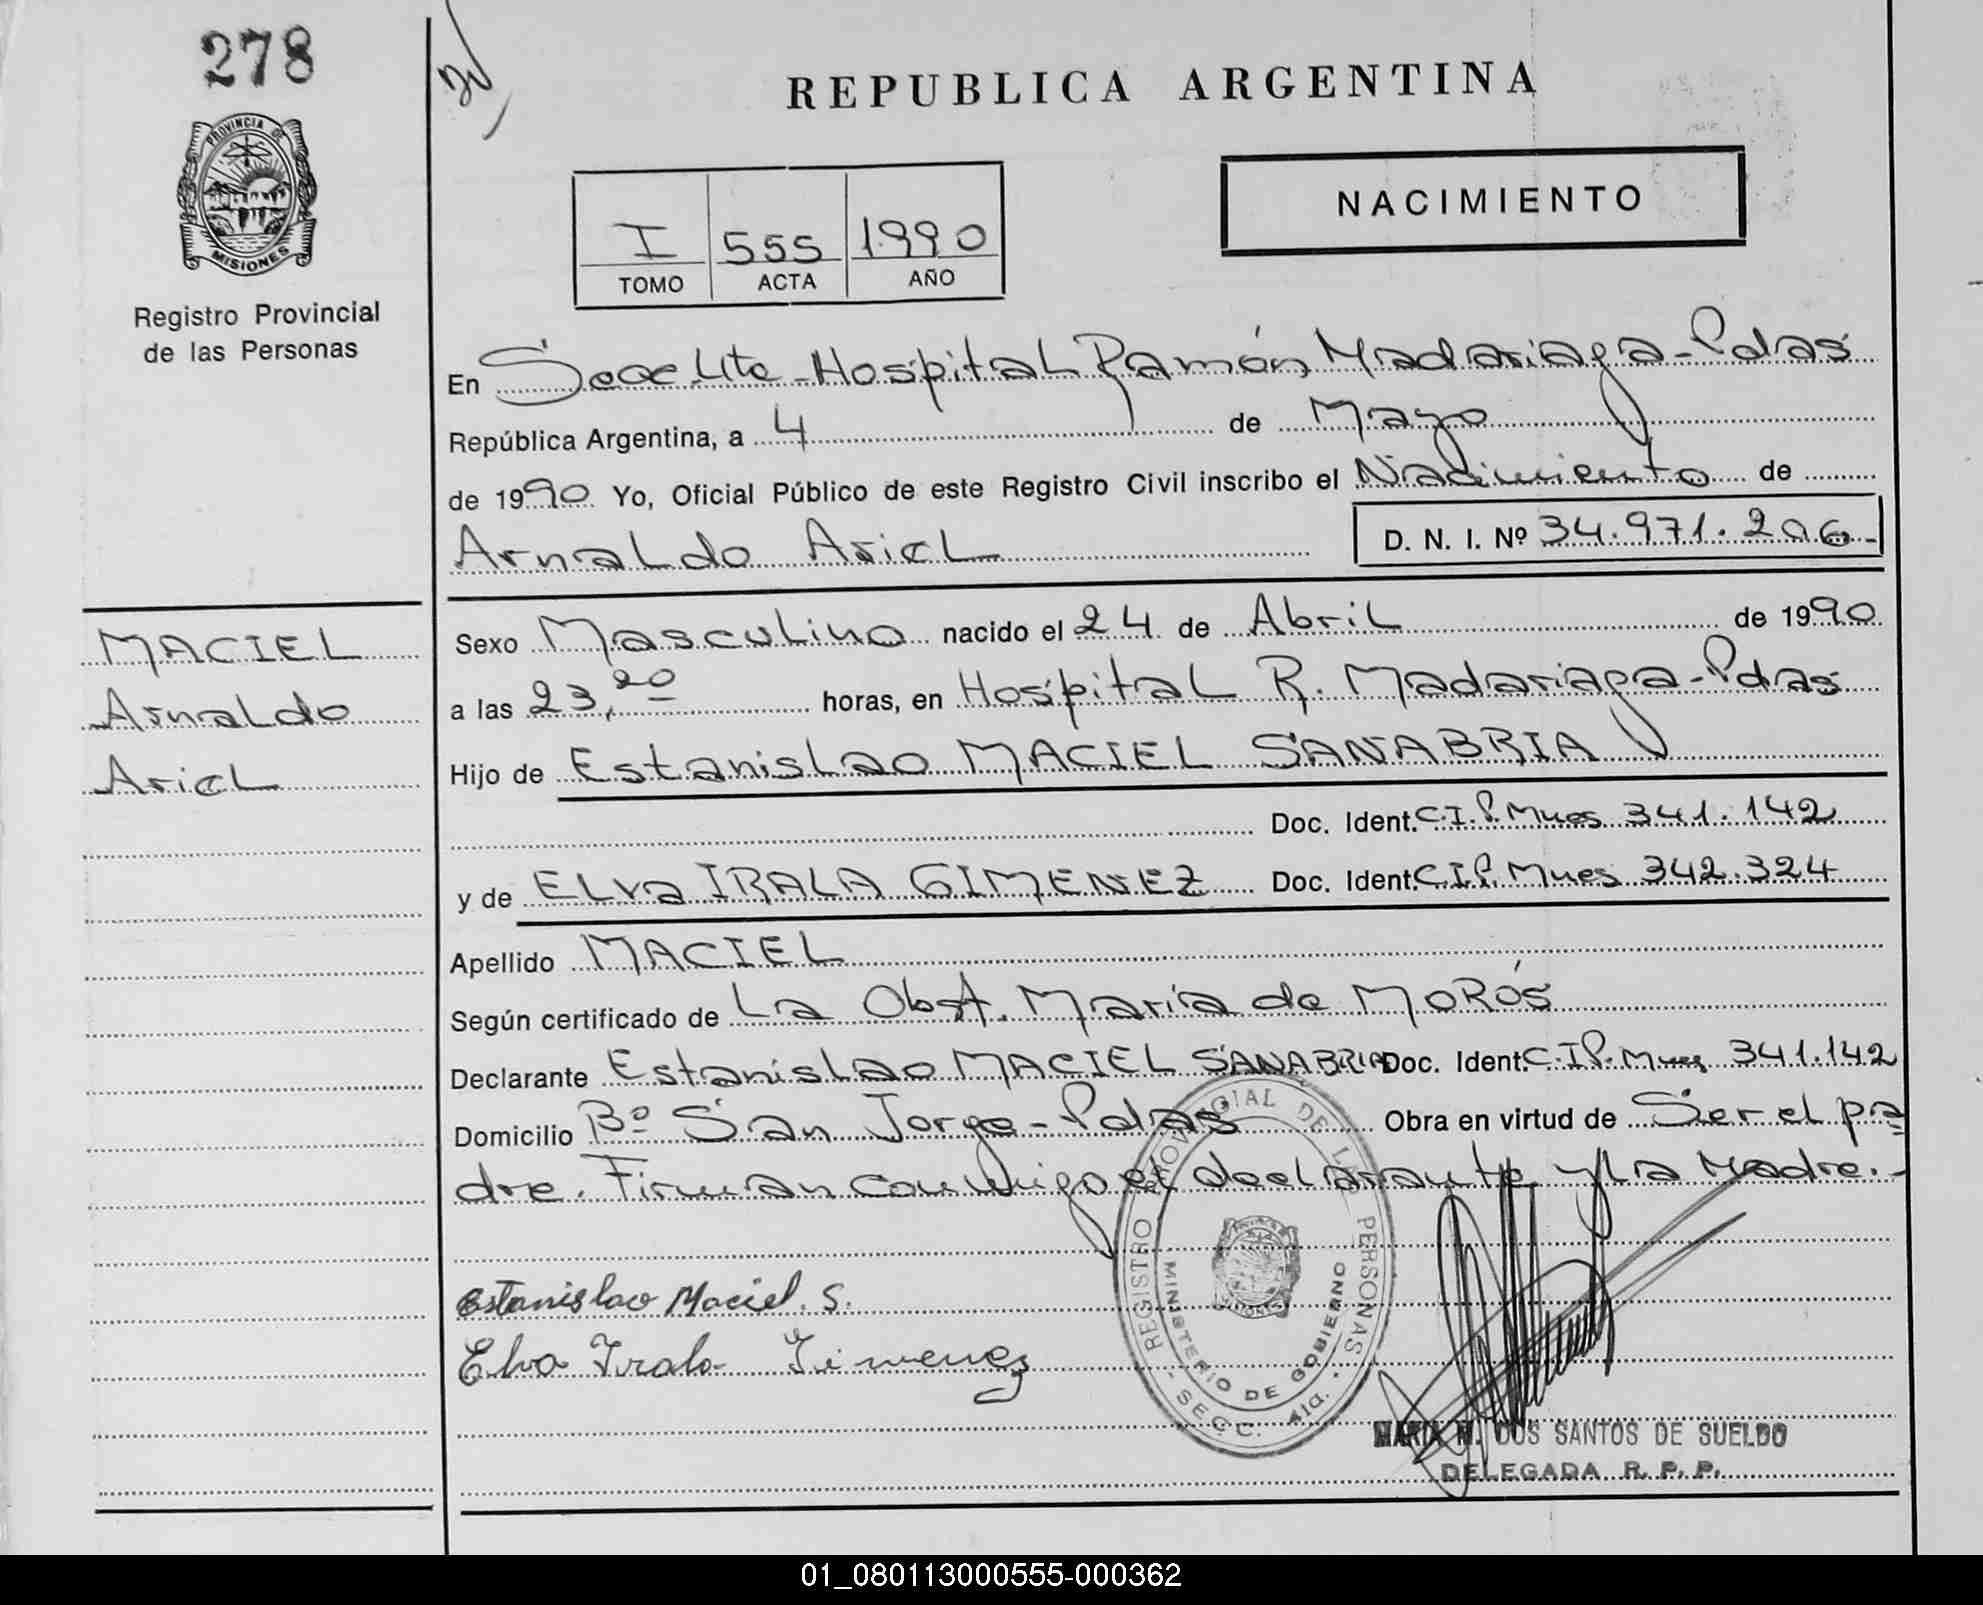 278
PROVINCIA DE
MISIONES
Registro Provincial
de las Personas
REPUBLICA ARGENTINA
NACIMIENTO
I 555 1990
TOMO ACTA AÑO
En Secc. 4ta - Hospital Ramón Madariaga - Pdas
República Argentina, a 4 de Mayo
de 1990 Yo, Oficial Público de este Registro Civil inscribo el Nacimiento de
Arnaldo Ariel D. N. I. Nº 34.971.206.-
MACIEL
Arnaldo
Ariel
Sexo Masculino nacido el 24 de Abril de 1990
a las 23,20 horas, en Hospital R. Madariaga - Pdas
Hijo de Estanislao MACIEL SANABRIA
Doc. Ident. C.I.P. Mnes 341.142
y de ELva IRALA GIMENEZ Doc. Ident. C.I.P. Mnes 342.324
Apellido MACIEL
Según certificado de La Obst. María de MoRós
Declarante Estanislao MACIEL SANABRIA Doc. Ident. C.I.P. Mnes 341.142
Domicilio Bº San Jorge - Pdas Obra en virtud de Ser el pa
dre. Firman conmigo el declarante y la Madre.-
Estanislao Maciel. S.
Elva Irala Jimenez
REGISTRO PROVINCIAL DE LAS PERSONAS
MINISTERIO DE GOBIERNO
- SECC. 4ta. -
MARIA M. DOS SANTOS DE SUELDO
DELEGADA R. P. P.
01_080113000555-000362